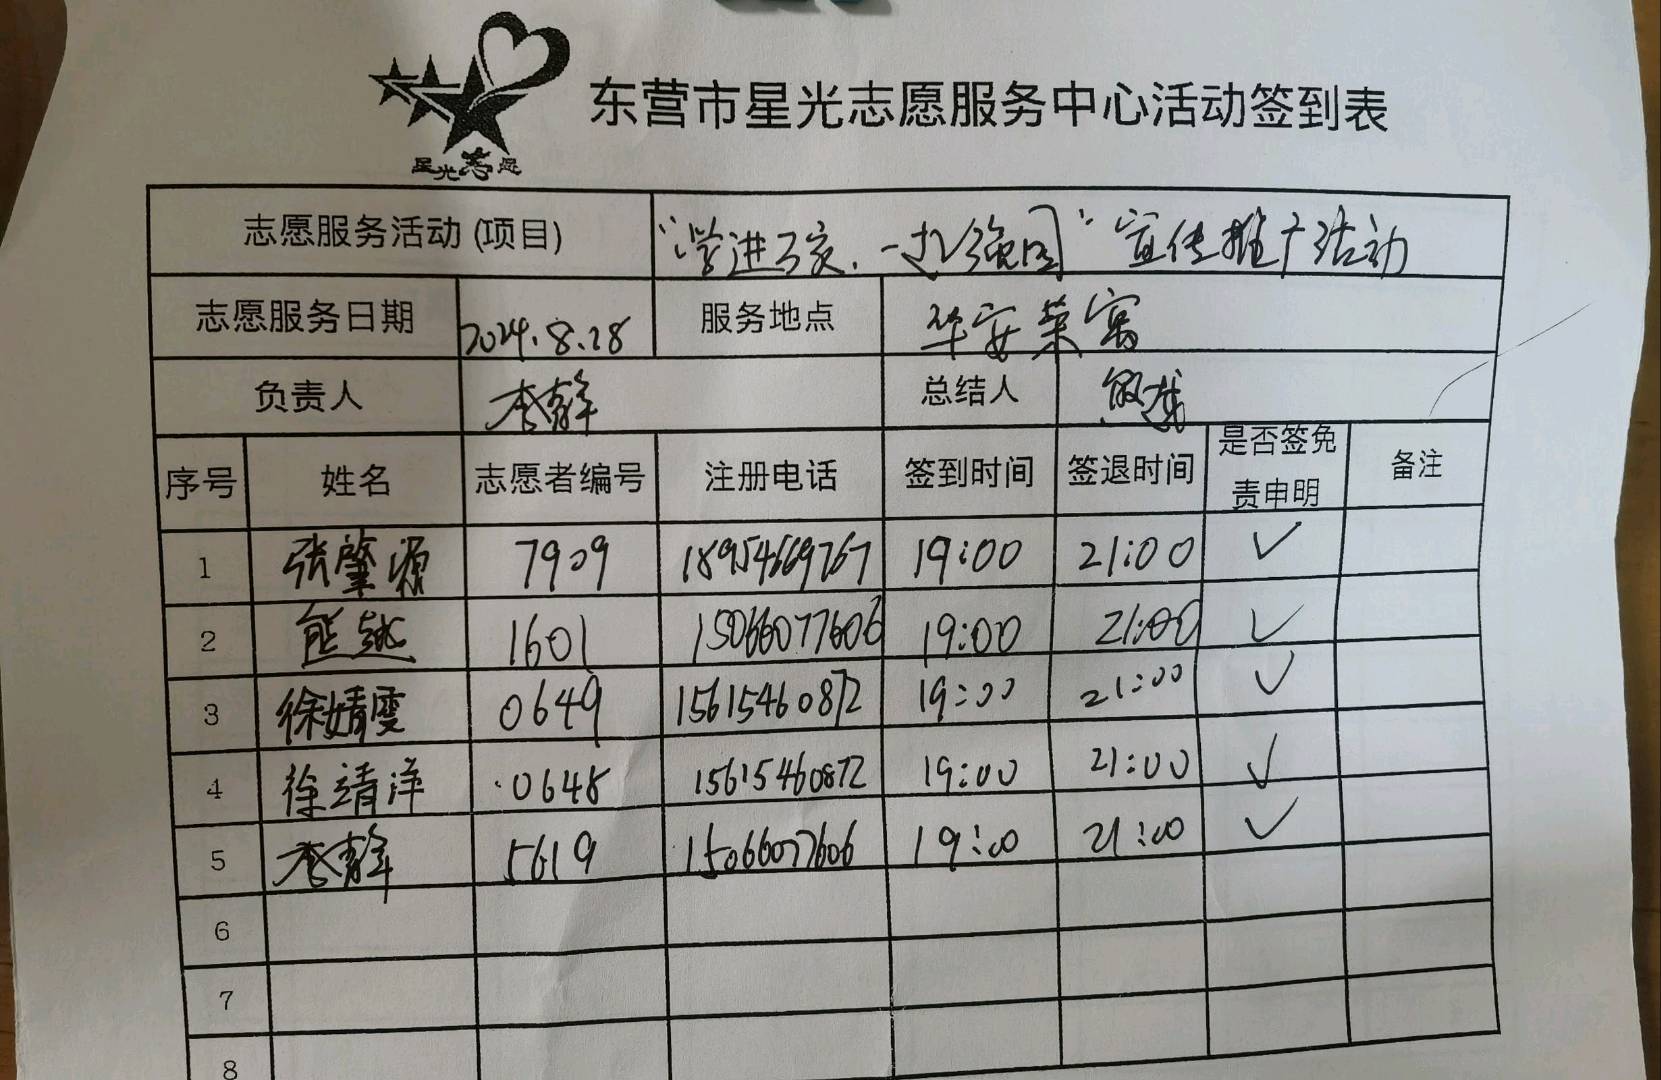 星光志愿
东营市星光志愿服务中心活动签到表
志愿服务活动(项目) 宣传推广活动
志愿服务日期 2024.8.28 服务地点 华安荣寓
负责人 李静 总结人
序号 姓名 志愿者编号 注册电话 签到时间 签退时间 是否签免责申明 备注
1 张肇源 7909 18954669767 19:00 21:00 ✓
2 熊越 1601 15066077606 19:00 21:00 ✓
3 徐婧雯 0649 15615460872 19:00 21:00 ✓
4 徐靖洋 0648 15615460872 19:00 21:00 ✓
5 李静 5619 15066077606 19:00 21:00 ✓
6
7
8